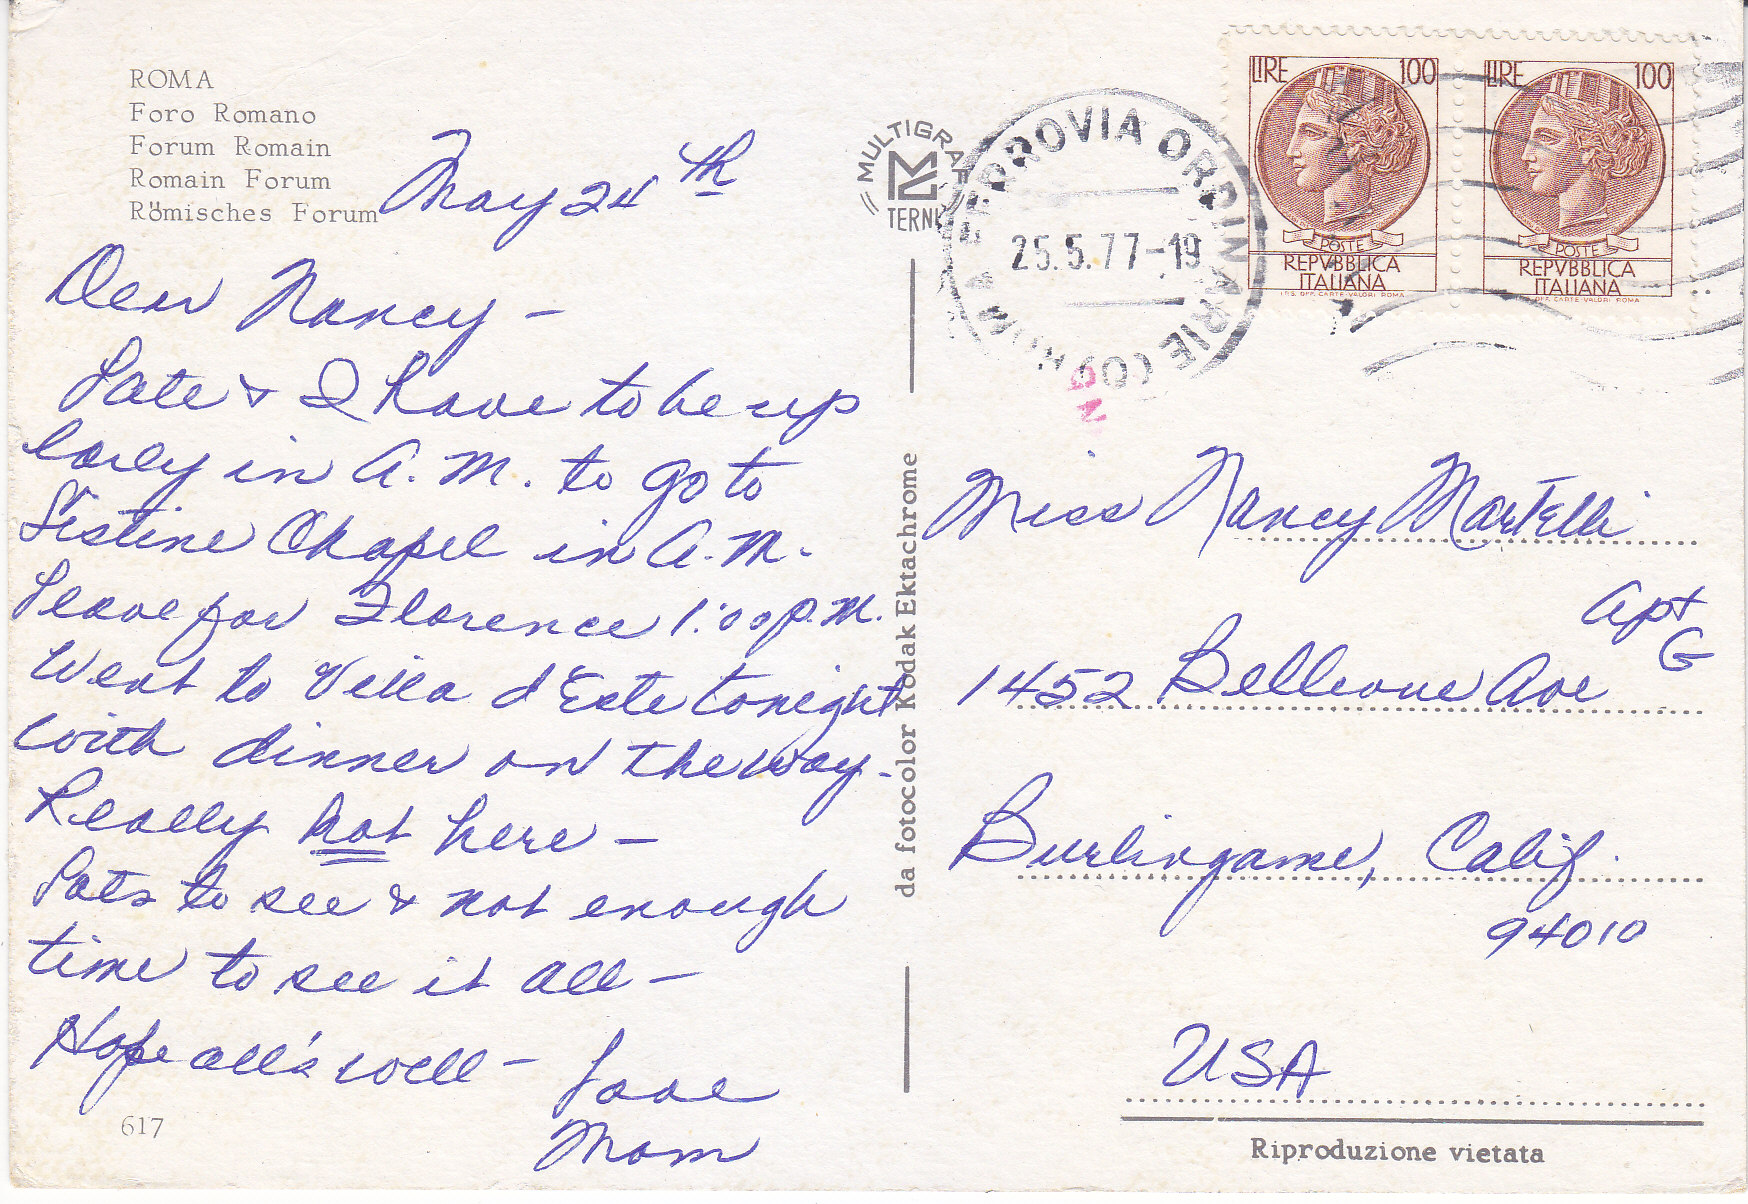 ROMA
Foro Romano
Forum Romain
Romain Forum
Römisches Forum
May 24th
Dear Nancy –
Late & I have to be up
early in A.M. to go to
Sistine Chapel in A.M.
Leave for Florence 1:00 P.M.
Went to Villa d'Este tonight
with dinner on the way.
Really hot here –
Lots to see & not enough
time to see it all –
Hope all's well –
Love
Mom
617
MULTIGRAF
TERNI
da fotocolor Kodak Ektachrome
FERROVIA ORDINARIE
25.5.77-19
LIRE 100
POSTE
REPVBBLICA
ITALIANA
LIRE 100
POSTE
REPVBBLICA
ITALIANA
Miss Nancy Martelli
Apt
G
1452 Bellevue Ave
Burlingame, Calif.
94010
USA
Riproduzione vietata